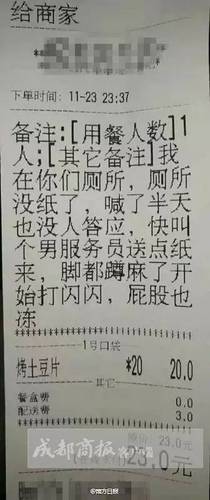 给商家
下单时间: 11-23 23:37
备注:[用餐人数]1
人;[其它备注]我
在你们厕所，厕所
没纸了，喊了半天
也没人答应，快叫
个男服务员送点纸
来，脚都蹲麻了开
始打闪闪，屁股也
冻
1号口袋
烤土豆片 *20 20.0
其它
餐盒费 0.0
配送费 3.0
原价: 23.0元
23.0元
成都商报
@南方日报